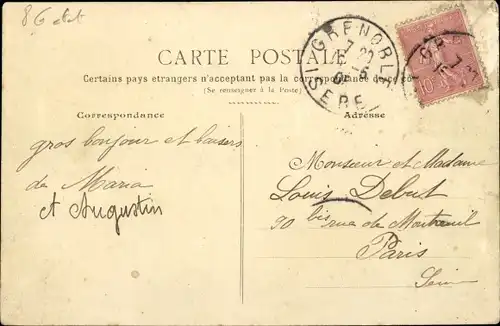 CARTE POSTALE
Certains pays etrangers n'acceptant pas la correspondance de ce
(Se renseigner à la Poste)
GRENOBLE
ISERE
10
Correspondance
Adresse
gros bonjour et baisers
de Maria
et Augustin
Monsieur et Madame
Louis Debut
90 bis rue de Montreuil
Paris
Seine